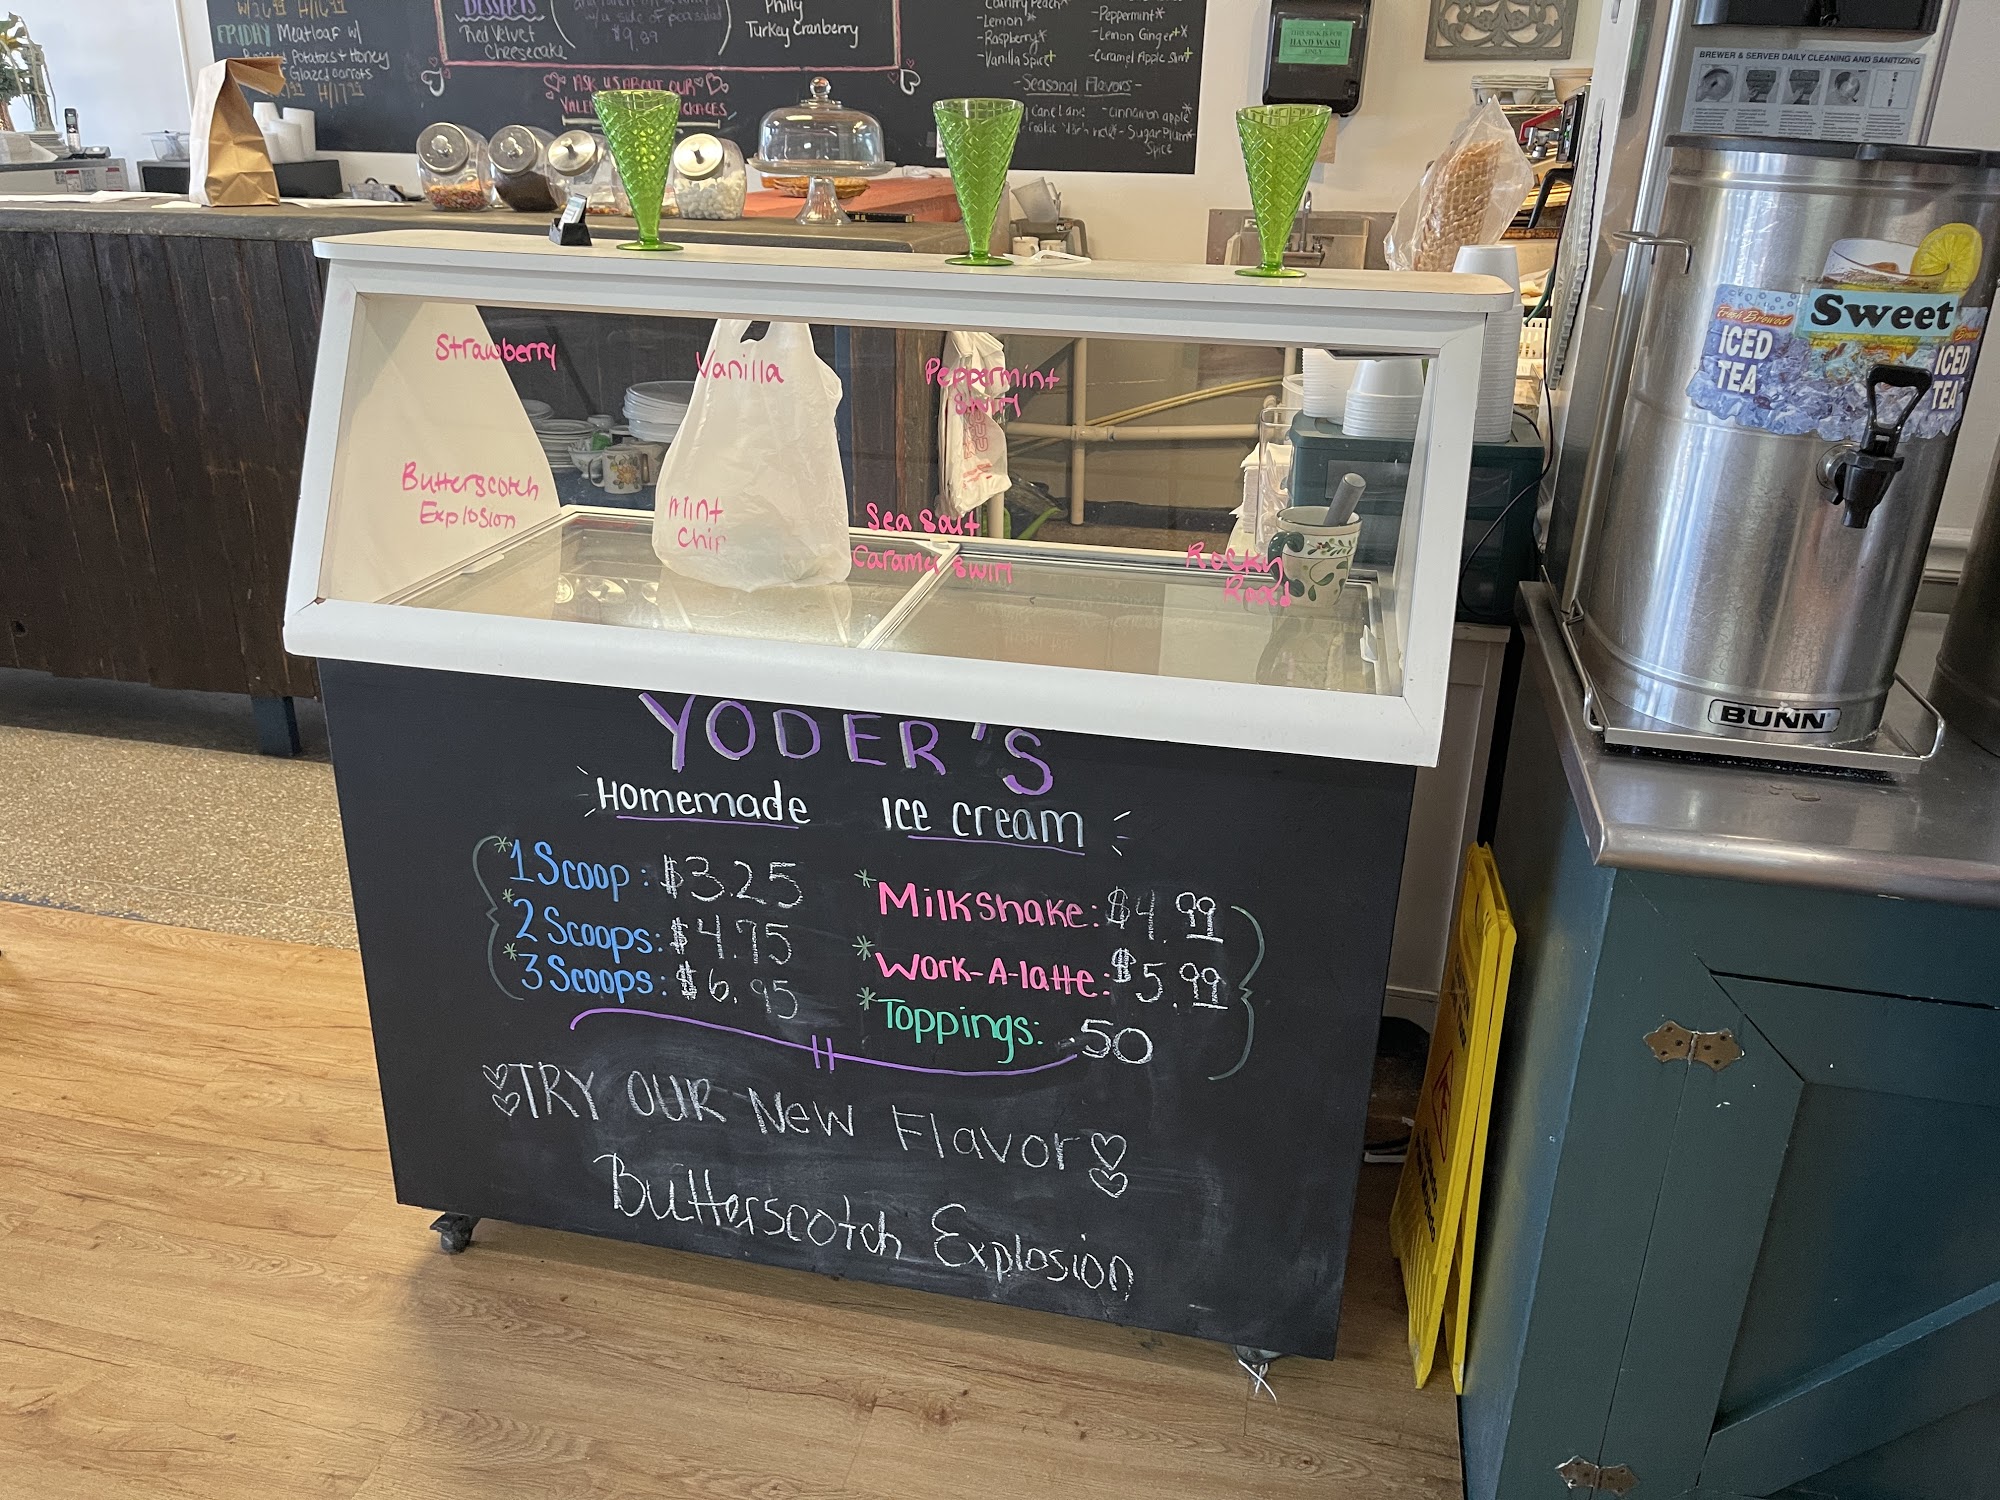 FRIDAY Meatloaf w/
Potatoes + Honey
Glazed carrots
DESSERTS
Red Velvet
Cheesecake
w/a side of pea salad
$9.99
Philly
Turkey Cranberry
ASK US ABOUT OUR
Country Peach*
-Lemon*
-Raspberry*
-Vanilla Spice+
-Peppermint*
-Lemon Ginger+*
-Caramel Apple
-Seasonal Flavors-
Cane Lane
-Cinnamon apple*
-Sugar Plum*
Spice
THIS SINK IS FOR
HAND WASH
ONLY
BREWER & SERVER DAILY CLEANING AND SANITIZING
Fresh Brewed
ICED
TEA
Sweet
ICED
TEA
BUNN
Strawberry
Vanilla
Peppermint
Swirl
Butterscotch
Explosion
mint
chip
Sea Salt
Caramel Swirl
Rocky
Road
YODER'S
Homemade Ice cream
*1 Scoop: $3.25
*2 Scoops: $4.75
*3 Scoops: $6.95
*Milkshake: $4.99
*Work-A-latte: $5.99
*Toppings: .50
TRY OUR New Flavor
Butterscotch Explosion